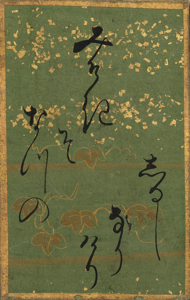 みそき
そ
なつの
しるし
なり
ける